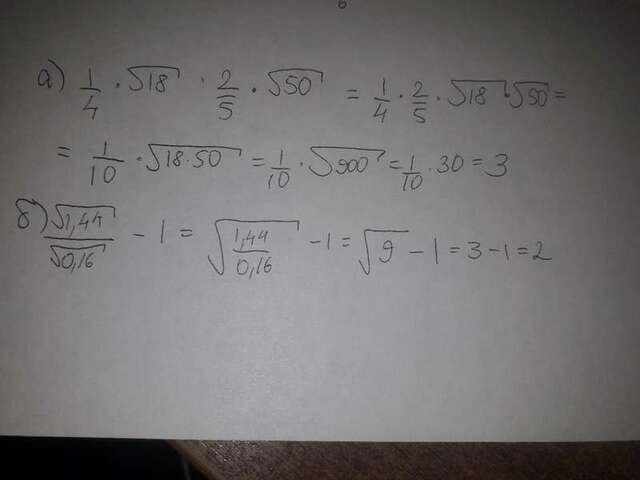 а) 1/4 · √18 · 2/5 · √50 = 1/4 · 2/5 · √18 · √50 =
= 1/10 · √18·50 = 1/10 · √900 = 1/10 · 30 = 3
б) √1,44/√0,16 - 1 = √1,44/0,16 - 1 = √9 - 1 = 3 - 1 = 2